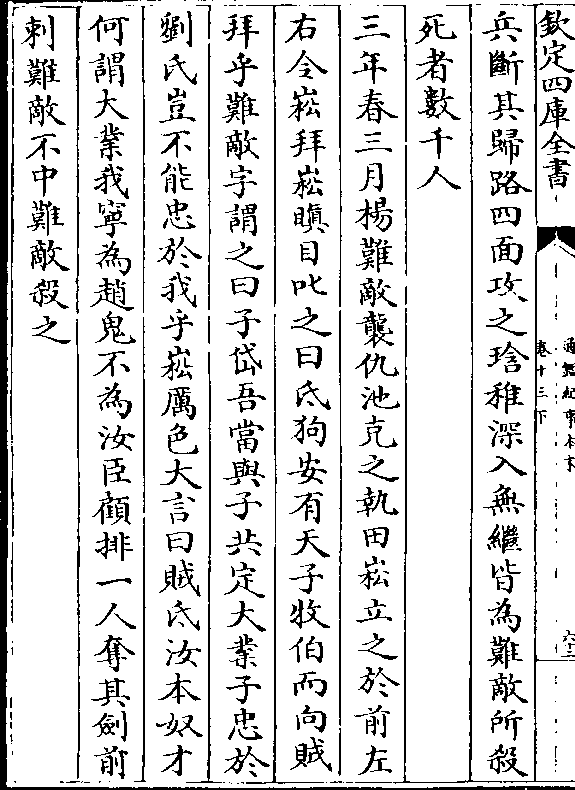 欽定四庫全書
通鑑紀事本末
卷十三下
六十二
兵斷其歸路四面攻之琀稚深入無繼皆為難敵所殺
死者數千人
三年春三月楊難敵襲仇池克之執田崧立之於前左
右令崧拜崧瞋目叱之曰氐狗安有天子牧伯而向賊
拜乎難敵字謂之曰子岱吾當與子共定大業子忠於
劉氏豈不能忠於我乎崧厲色大言曰賊氐汝本奴才
何謂大業我寧為趙鬼不為汝臣顧排一人奪其劍前
刺難敵不中難敵殺之